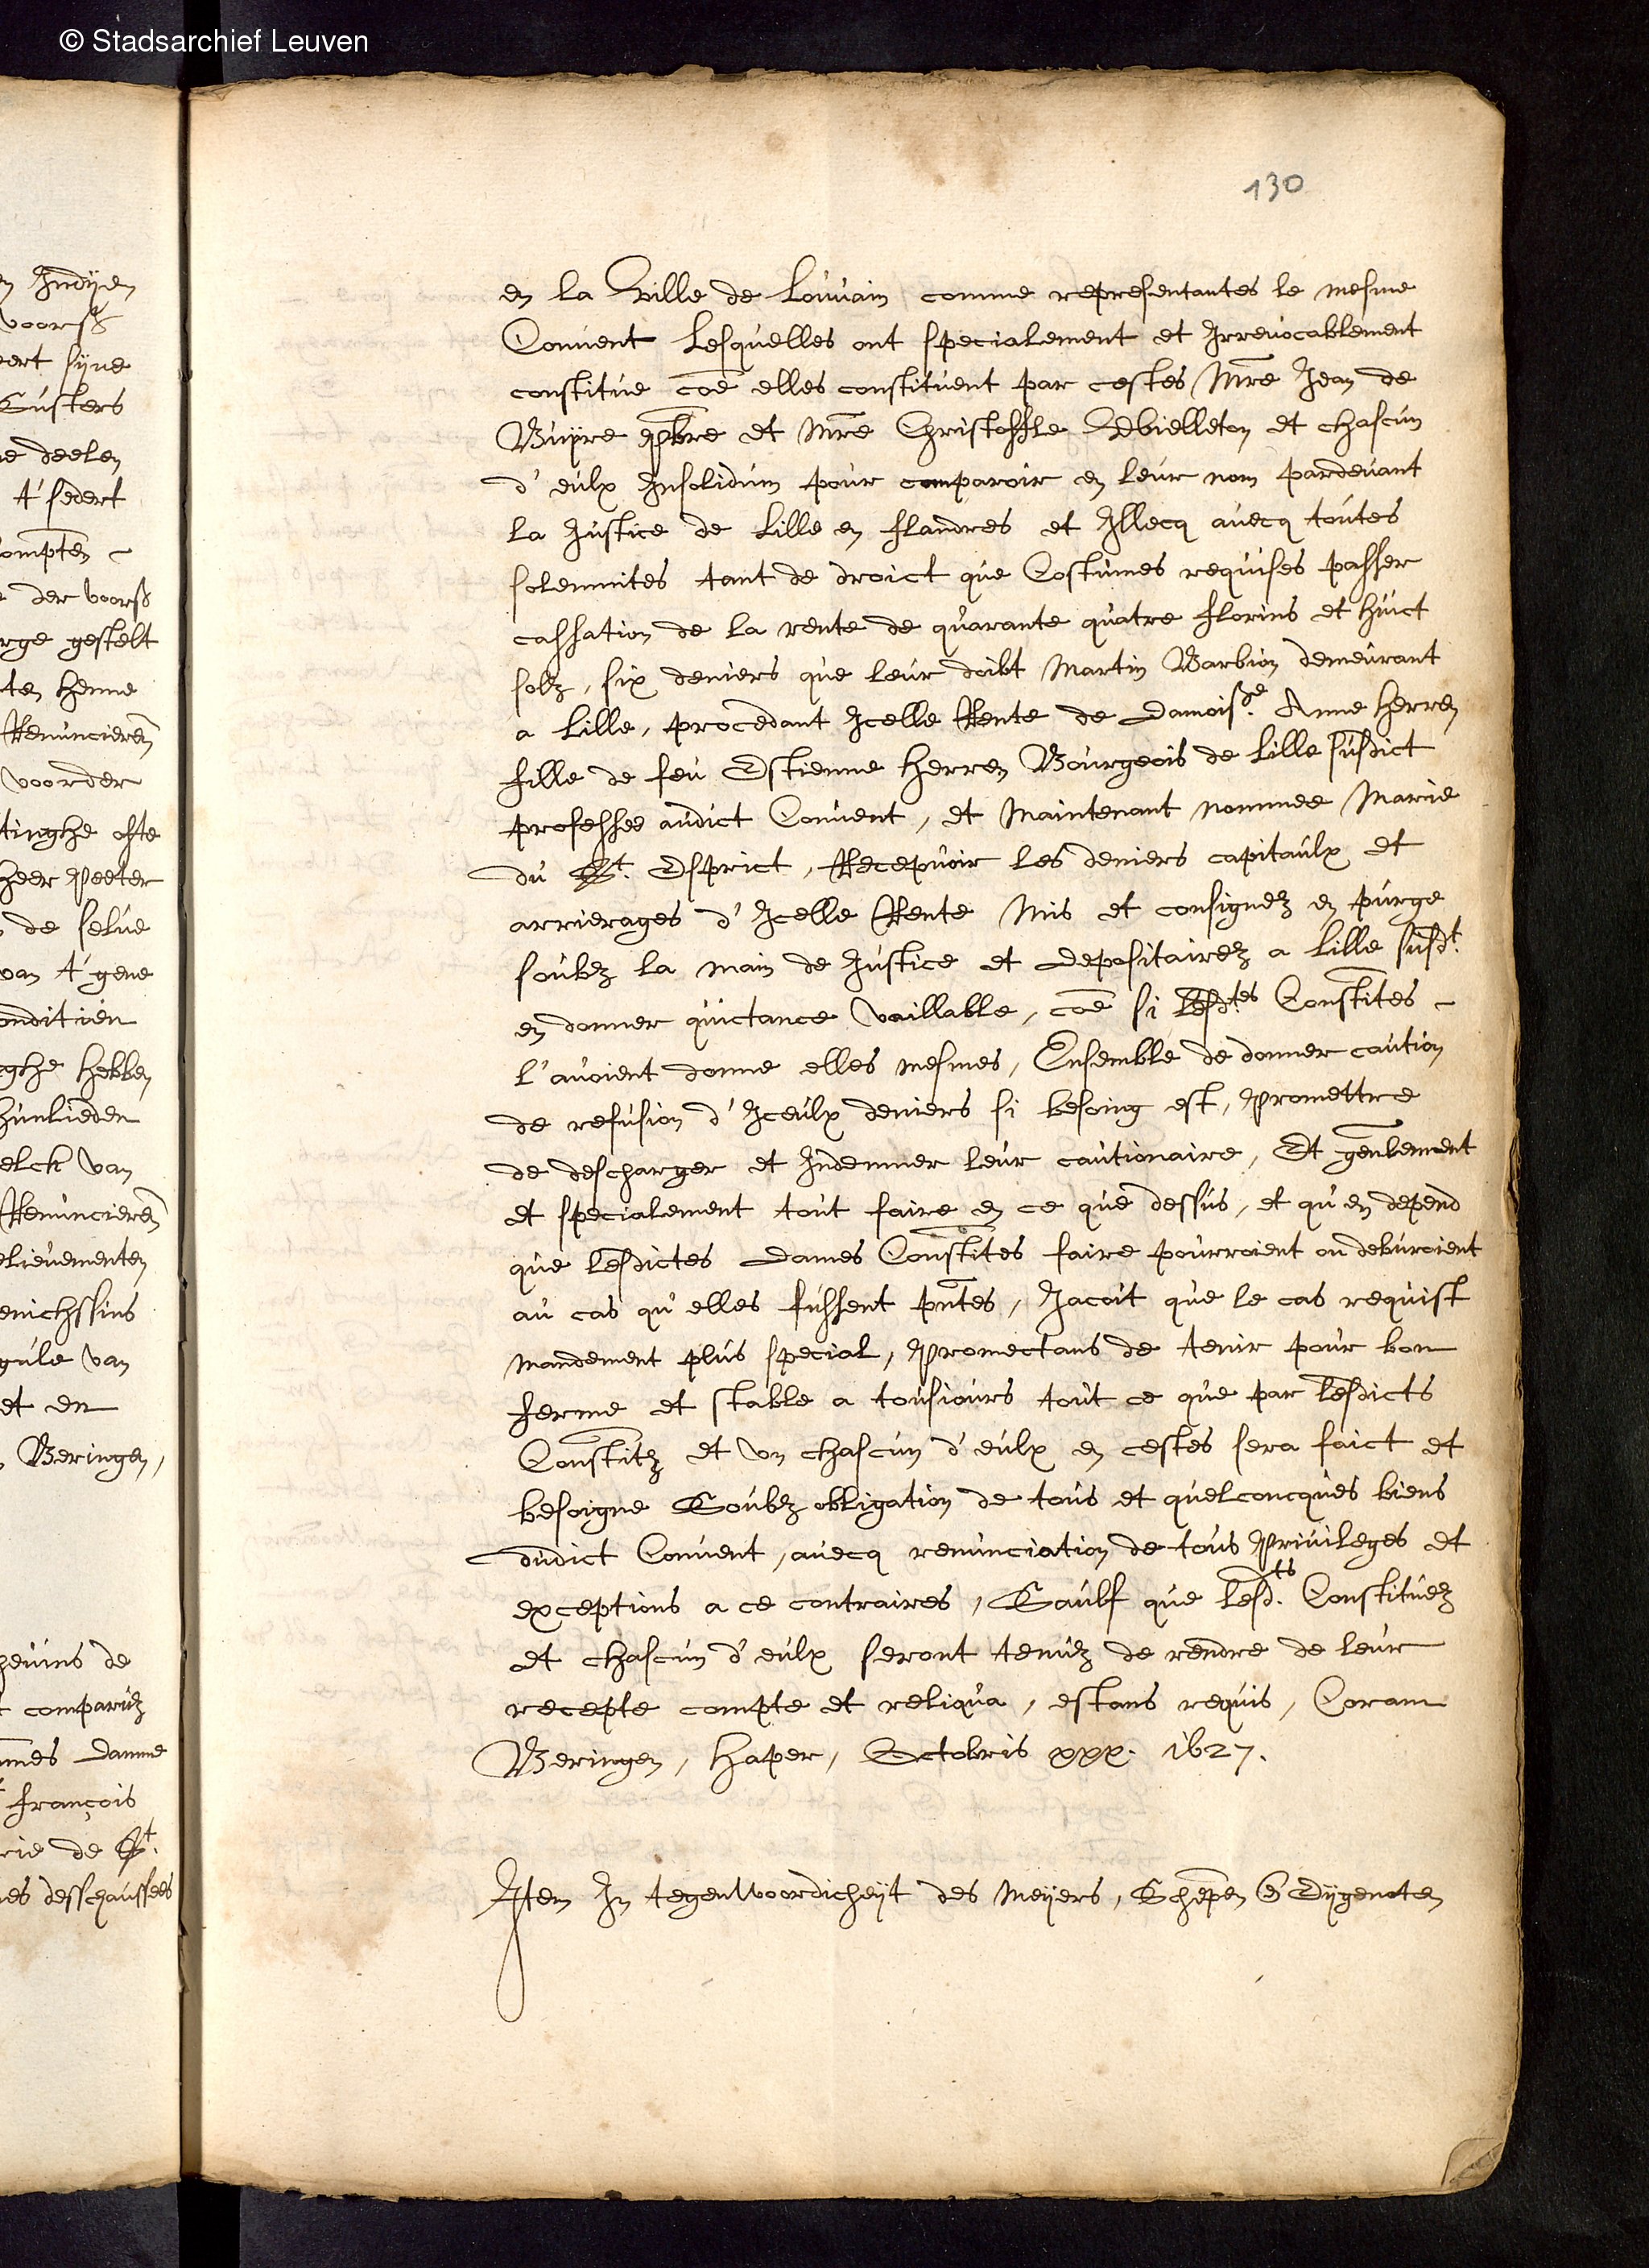 © Stadsarchief Leuven
130
en la Ville de Louvain comme representantes le mesme
Convent Lesquelles ont specialement et Irrevocablement
constitue coē elles constituent par cestes Mre Jean de
Buyre pbre et Mre Christoffle et chascun
d'eulx Insolidum pour comparoir en leur nom pardevant
la Justice de Lille en flandres et Illecq avecq toutes
solemnites tant de droict que Costumes requises passer
cassation de la rente de quarante quatre florins et huict
solz, six deniers que leur doibt Martin Barbion demeurant
a Lille, procedant Icelle Rente de damoisle. Anne Herren
fille de feu Estienne Herren Bourgeois de Lille susdict
professee audict Convent, et Maintenant nommee Marie
du St. Esprict, Recepvoir les deniers capitaulx et
arrierages d'Icelle Rente Mis et consignez en purge
soubz la main de Justice et depositairez a Lille susdt.
en donner quictance vaillable, coē si lesdtes Constites
l'avoient donne elles mesmes, Ensemble de donner caution
de refusion d'Iceulx deniers si besoing est, Promettre
de descharger et Indemner leur cautionaire, Et genlement
et specialement tout faire en ce que dessus, et qu'en depend
que lesdictes dames Constites faire pourroient ou debvroient
au cas qu'elles fussent pntes, Jacoit que le cas requist
mandement plus special, Promectans de tenir pour bon
ferme et stable a tousiours tout ce que par lesdicts
Constitz et un chascun d'eulx en cestes sera faict et
besoigne Soubz obligation de tous et quelconcques biens
dudict Convent, avecq renunciation de tous Privileges et
exceptions a ce contraires, Saulf que lesd.ts Constituez
et chascun d'eulx seront tenuz de rendre de leur
recepte compte et reliqua, estans requis, Coram
Beringen, Haper, Octobris xxx. 1627.
Item In tegenwoordicheyt des Meyers, Schepen en Eygenoten